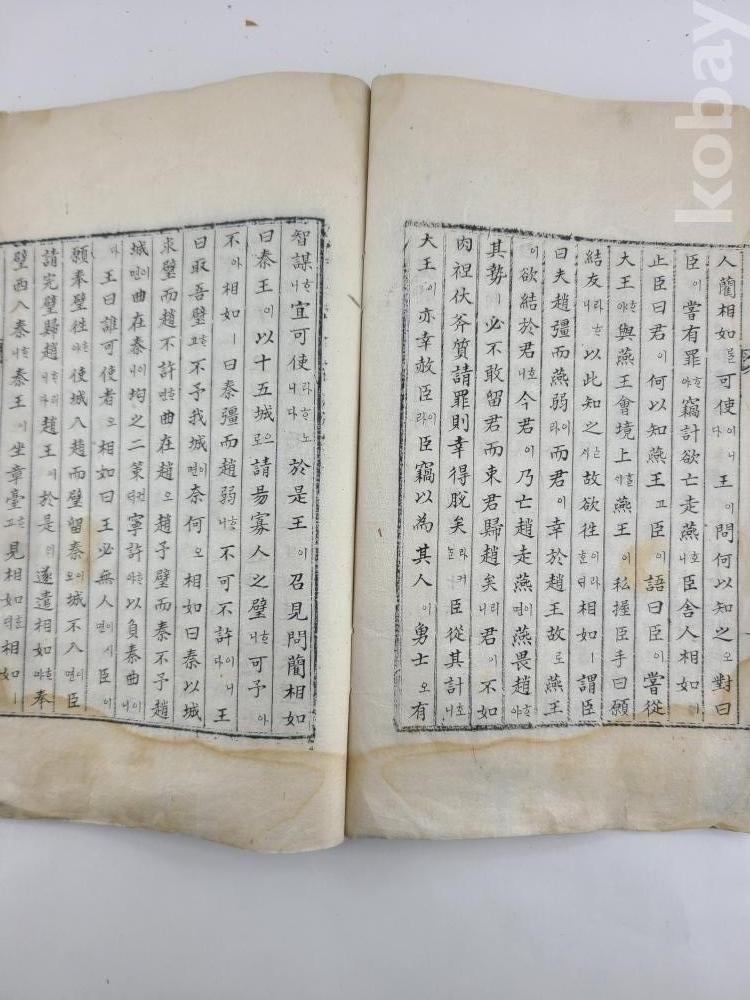 kobay
人藺相如를可使이니다王이問何以知之오對曰
臣이嘗有罪하야竊計欲亡走燕하니臣舍人相如ㅣ
止臣曰君이何以知燕王고臣이語曰臣이嘗從
大王하야與燕王會境上燕王이私握臣手曰願
結友라하니以此知之故欲往이라한대相如ㅣ謂臣
曰夫趙彊而燕弱이라而君이幸於趙王故로燕王
이欲結於君호니今君이乃亡趙走燕이면燕畏趙하야
其勢이必不敢留君而束君歸趙矣리니君이不如
肉袒伏斧質請罪則幸得脫矣라커눈臣從其計호니
大王이亦幸赦臣이라臣竊以為其人이勇士오有
智謀하니宜可使라하노니다於是王이召見問藺相如
曰秦王이以十五城으로請易寡人之璧하니可予아
不아相如ㅣ曰秦彊而趙弱하니不可不許이니다王
曰取吾璧하고不予我城이면奈何오相如曰秦以城
求璧而趙不許면曲在趙오趙予璧而秦不予趙
城이면曲在秦이니均之二策컨댄寧許하야以負秦曲이니
다王曰誰可使者오相如曰王必無人이시면臣이
願奉璧往하야使城入趙而璧留秦이오城不入이면臣
請完璧歸趙하리니다趙王이於是의遂遣相如하야奉
璧西入秦하니秦王이坐章臺하고見相如한대相如ㅣ